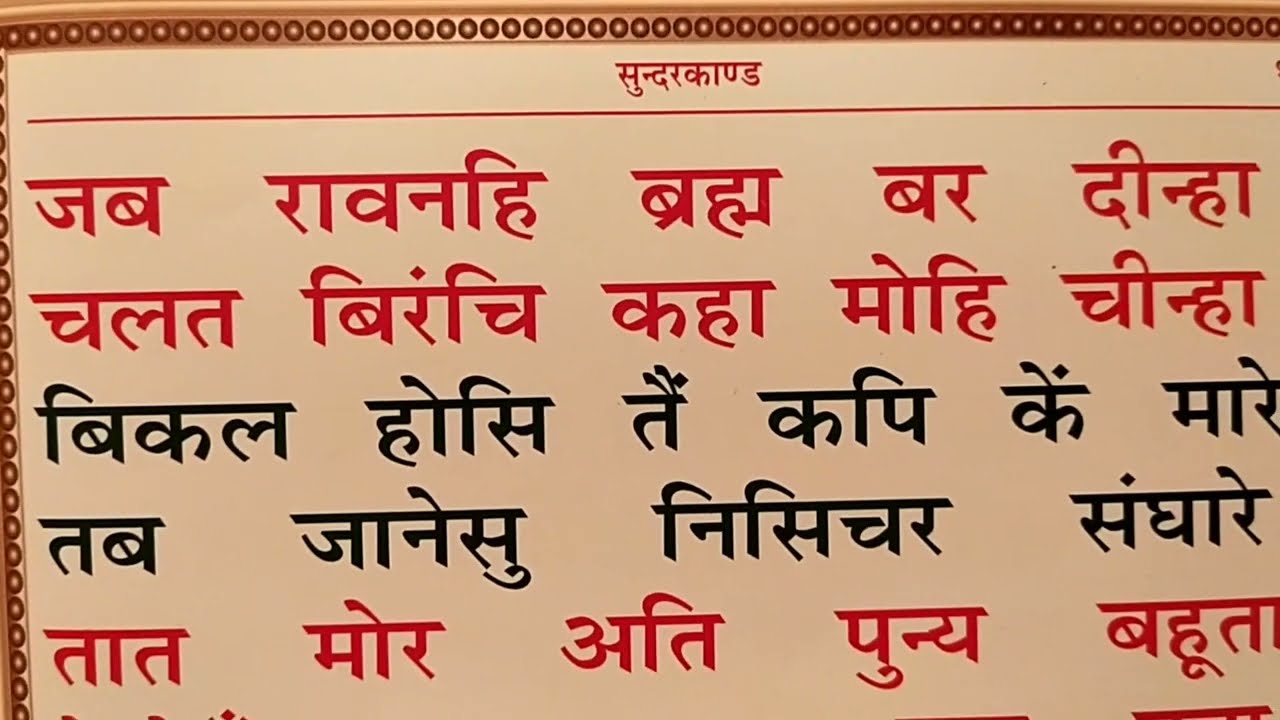 सुन्दरकाण्ड
जब रावनहि ब्रह्म बर दीन्हा
चलत बिरंचि कहा मोहि चीन्हा
बिकल होसि तैं कपि कें मारे
तब जानेसु निसिचर संघारे
तात मोर अति पुन्य बहूता